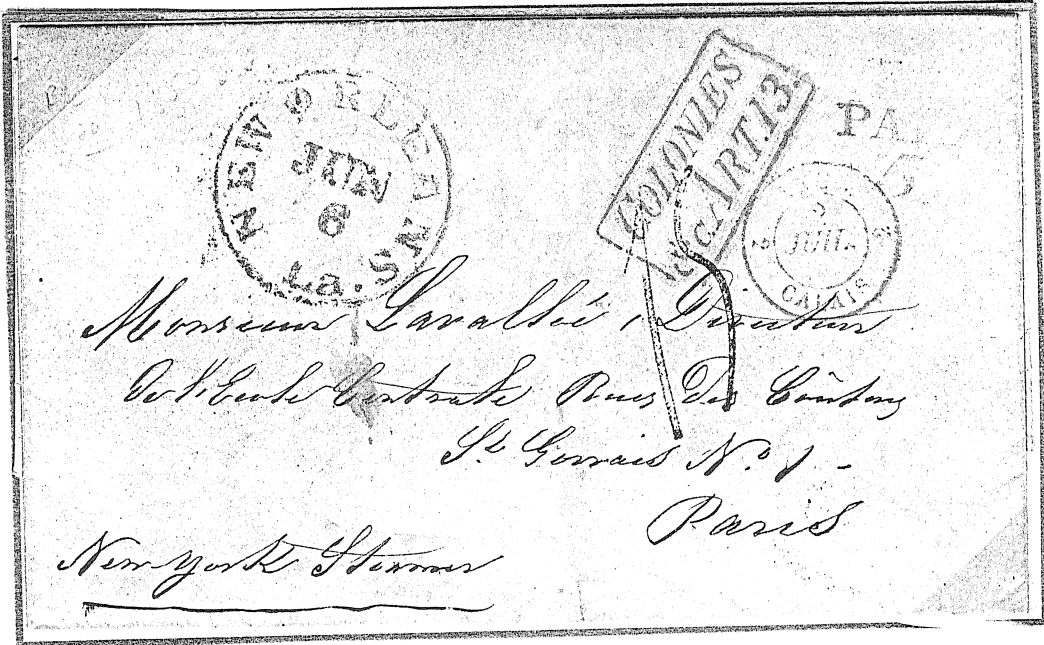 NEW ORLEANS La.
JUN
6
COLONIES
&c. ART. 13.
PA
5
JUIL.
CALAIS
Monsieur Lavallée, Directeur
De l'Ecole Centrale Rues Des
St Gervais No 1 -
Paris
New York Steamer